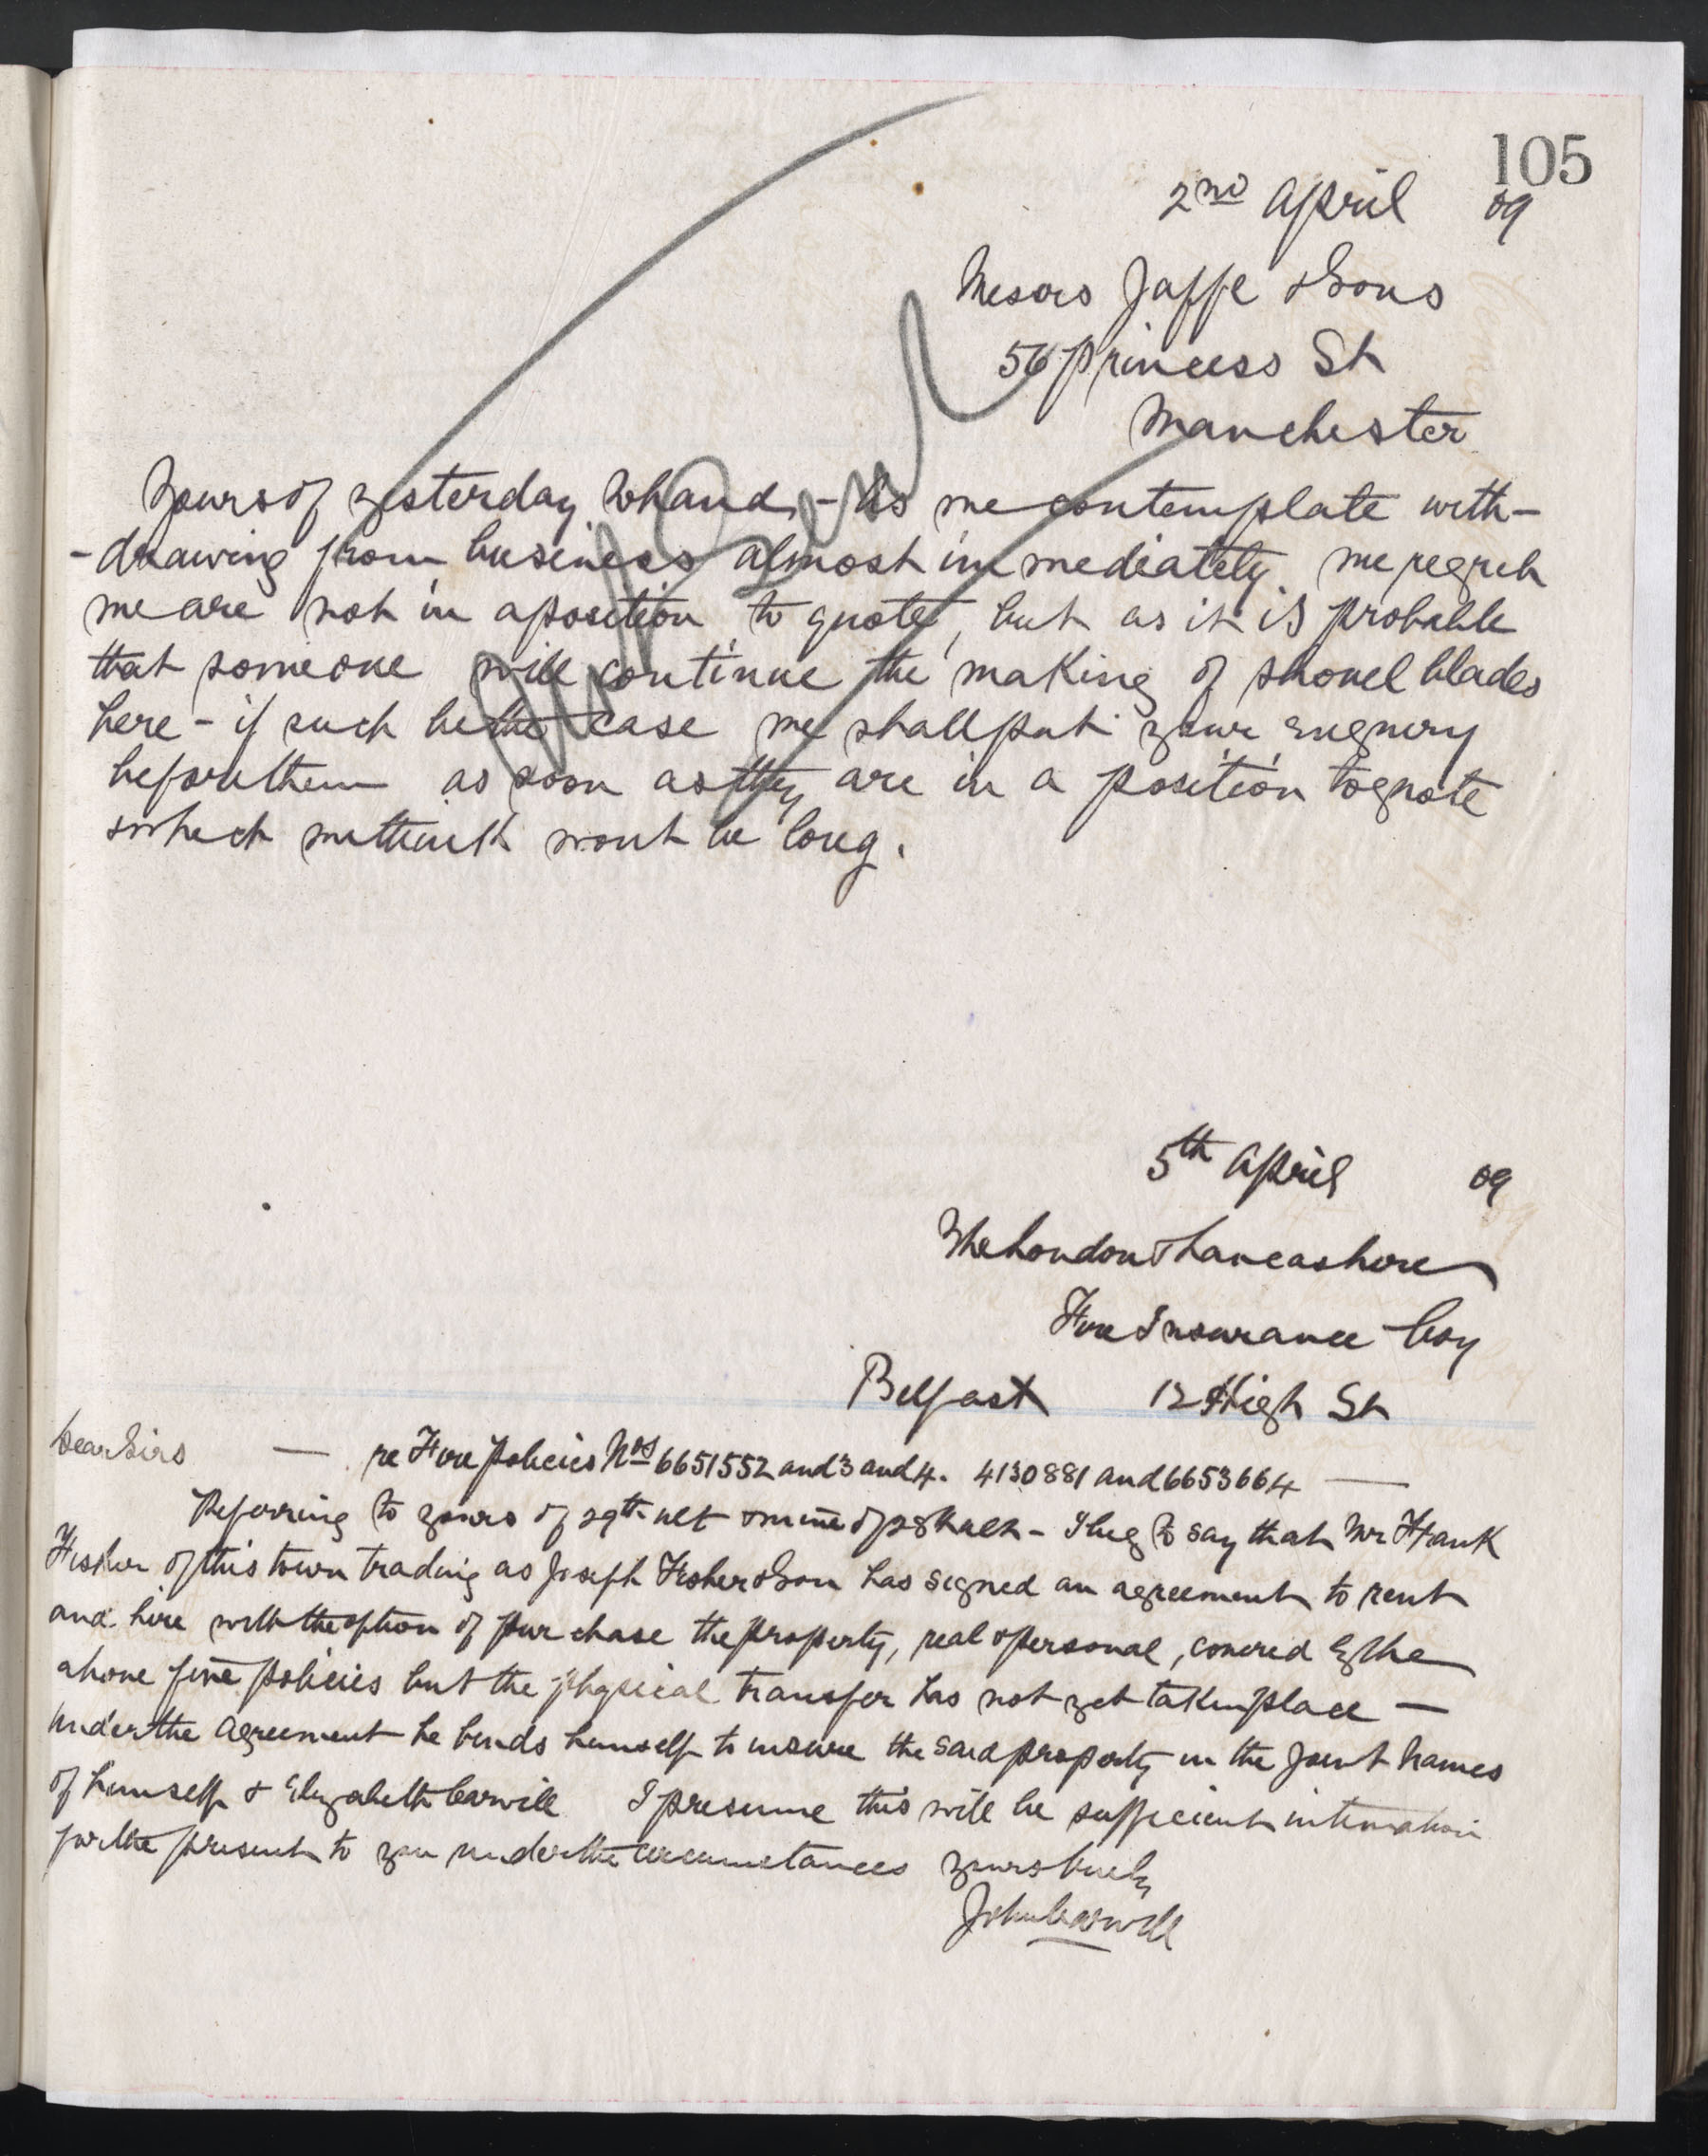 105
2nd April 09
Messrs Jaffe & Sons
56 Princess St
Manchester
Yours of yesterday to hand - As we contemplate with-
-drawing from business almost immediately, we regret
we are not in a position to quote, but as it is probable
that someone will continue the making of shovel blades
here - if such be the case we shall put your enquiry
before them as soon as they are in a position to quote
which we think wont be long.
5th April 09
The London & Lancashire
Fire Insurance Coy
Belfast 12 High St
Dear Sirs — re Fire Policies Nos 6651552 and 3 and 4. 4130881 and 6653664 —
Referring to yours of 29th ult & mine of 28th ult - I beg to say that Mr Frank
Fisher of this town trading as Joseph Fisher & Son has signed an agreement to rent
and hire with the option of purchase the property, real & personal, covered by the
above five policies but the physical transfer has not yet taken place —
Under the agreement he binds himself to insure the said property in the joint names
of himself & Elizabeth Carvill I presume this will be sufficient intimation
for the present to you under the circumstances yours truly
John Carvill